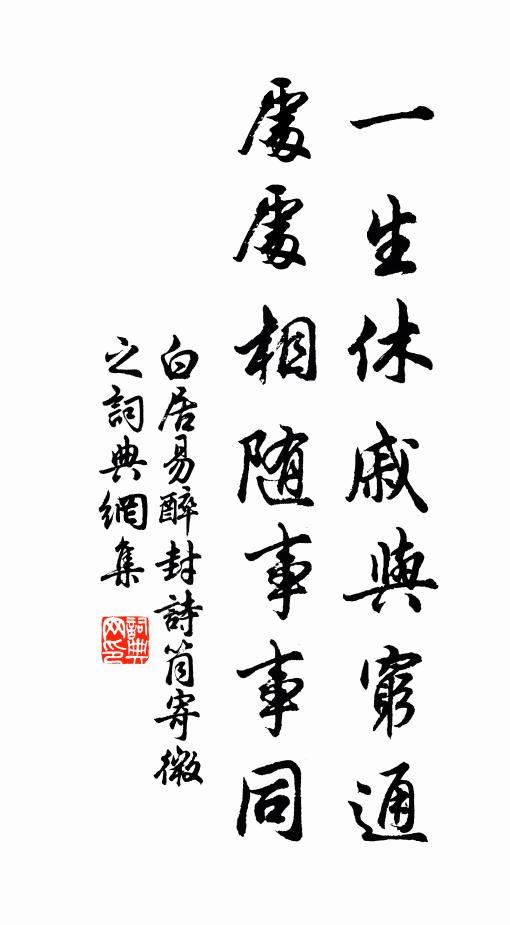 一生休戚與窮通
處處相隨事事同
白居易醉封詩筒寄微
之詞典網集
詞典网印